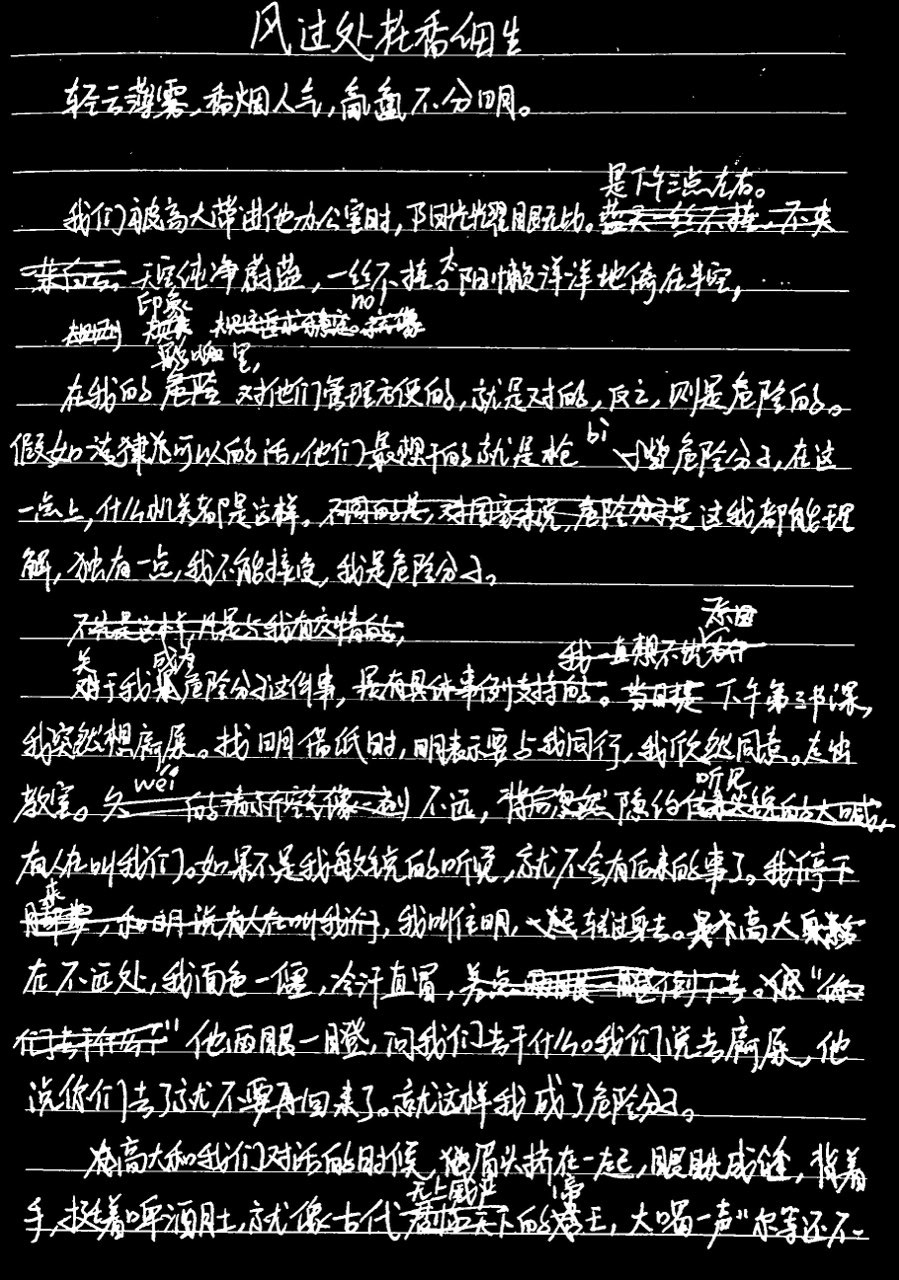 风过处杜香细生
轻云薄雾，香烟人气，氤氲不分明。
是下午三点左右。
我们被高大带进他办公室时，阳光耀眼无比。蓝天一丝不挂，不夹
菜白云 天空纯净蔚蓝，一丝不挂。太阳懒洋洋地倚在半空，
印象 no!
眼里，
在我的危险 对他们管理方便的，就是对的，反之，则是危险的。
假如法律认可以的话，他们最想干的就是枪bi一些危险分子，在这
一点上，什么机关都是这样。不同的是，对国家来说，危险分子是 这我都能理
解，独有一点，我不能接受，我是危险分子。
不光是这样，凡是与我有交情的，
原因
关 成为 我一直想不出
对于我是危险分子这件事，是有具体事例支持的。当日是 下午第三节课，
我突然想厕尿。找明借纸时，明表示要与我同行，我欣然同意。走出
wei 听见
教室。久 的清新空气像一走 不远，背后忽然隐约传来 的大喊，
有人在叫我们。如果不是我敏锐的听觉，就不会有后来的事了。我停下
来
脚步，和明说有人在叫我们，我叫住明，一起转过身去。是 高大
在不远处，我面色一僵，冷汗直冒，差点 倒下去。 “你
们去干什么？”他两眼一瞪，问我们去干什么。我们说去厕尿，他
说你们去了就不要再回来了。就这样我成了危险分子。
在高大和我们对话的时候，他眉头挤在一起，眼眯成缝，背着
无上威严 帝
手，挺着啤酒肚，就像古代 天下的君王，大喝一声“尔等还不